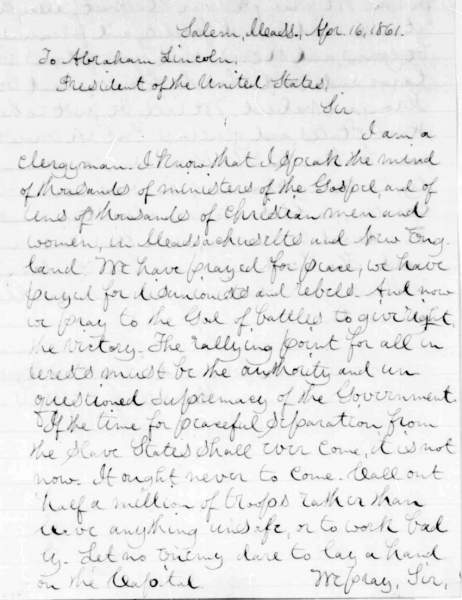 Salem, Mass., Apr. 16, 1861.
To Abraham Lincoln,
President of the United States,
Sir,
I am a
clergyman. I know that I speak the mind
of thousands of ministers of the Gospel, and of
tens of thousands of Christian men and
women, in Massachusetts and New Eng-
land. We have prayed for peace, we have
prayed for disunionists and rebels. And now
we pray to the God of battles to give right
the victory. The rallying point for all in
terests must be the authority and un
questioned supremacy of the Government.
If the time for peaceful separation from
the Slave States shall ever come, it is not
now. It ought never to come. Call out
half a million of troops rather than
leave anything unsafe, or to work bad
ly. Let no enemy dare to lay a hand
on the Capital. We pray, Sir,